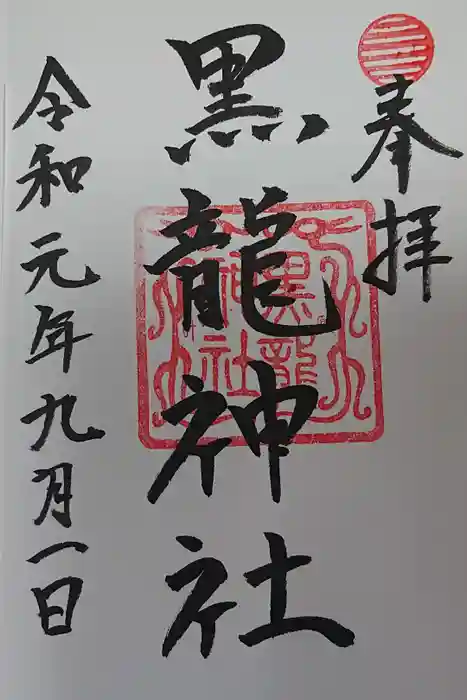 奉拝
黒龍神社
黒龍
神社
令和元年九月一日